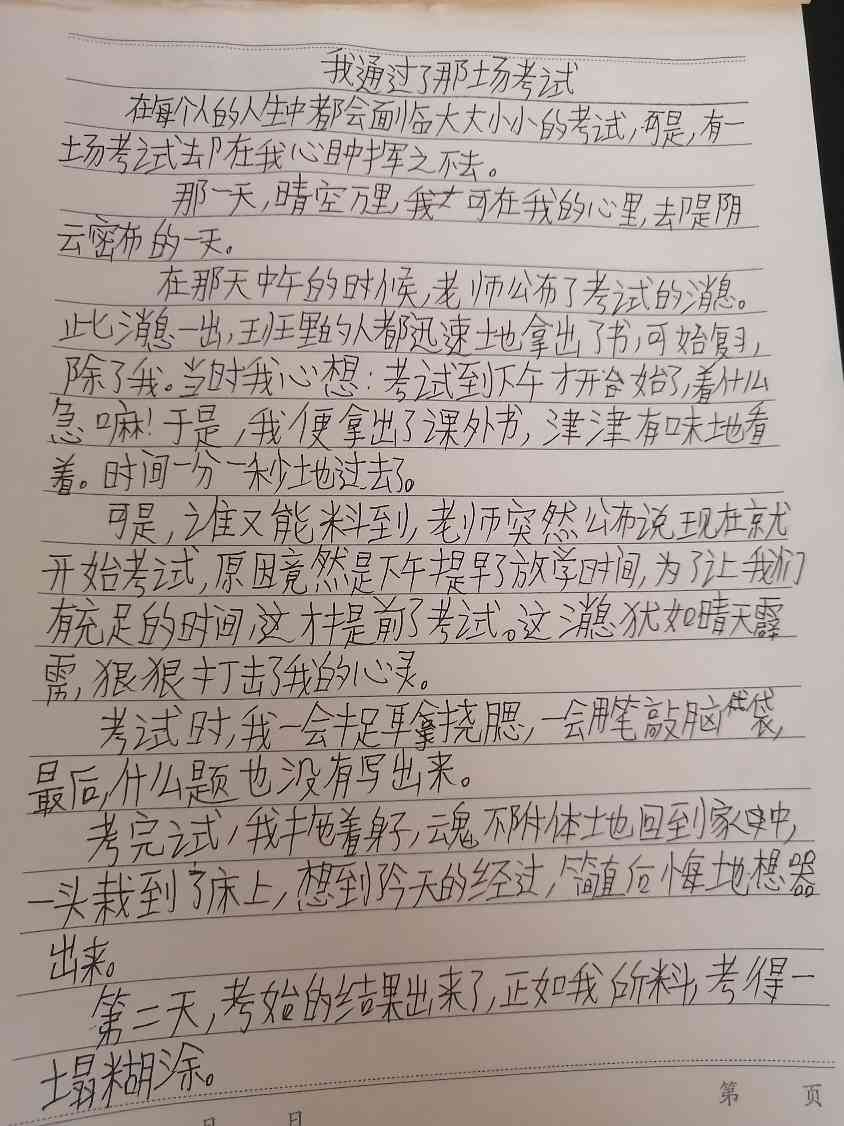 我通过了那场考试
在每个人的人生中都会面临大大小小的考试,可是,有一
场考试却在我心中挥之不去。
那一天,晴空万里,我才可在我的心里,却是阴
云密布的一天。
在那天中午的时候,老师公布了考试的消息。
此消息一出,班里的人都迅速地拿出了书,可始复习,
除了我。当时我心想:考试到下午才开始了,着什么
急嘛!于是,我便拿出了课外书,津津有味地看
着。时间一分一秒地过去了。
可是,谁又能料到,老师突然公布说现在就
开始考试,原因竟然是下午提早了放学时间,为了让我们
有充足的时间,这才提前了考试。这消息犹如晴天霹
雳,狠狠打击了我的心灵。
考试时,我一会捉耳挠腮,一会用笔敲脑袋,
最后,什么题也没有写出来。
考完试,我拖着身子,云魂不附体地回到家中,
一头栽到了床上,想到今天的经过,简直后悔地想哭
出来。
第二天,考始的结果出来了,正如我所料,考得一
塌糊涂。
第 页
月 日